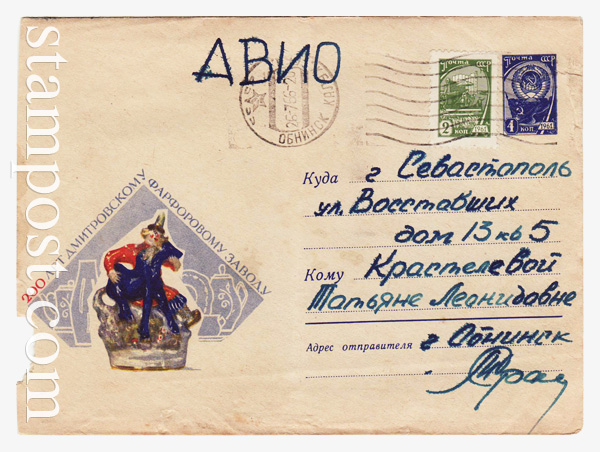 АВИО
ОБНИНСК
ПОЧТА СССР
2 КОП 1961
ПОЧТА СССР
4 КОП 1961
200 ЛЕТ ДМИТРОВСКОМУ ФАРФОРОВОМУ ЗАВОДУ
Куда г Севастополь
ул. Восставших
дом 13 кв 5
Кому Крастелевой
Татьяне Леонидовне
Адрес отправителя г Обнинск
stampost.com